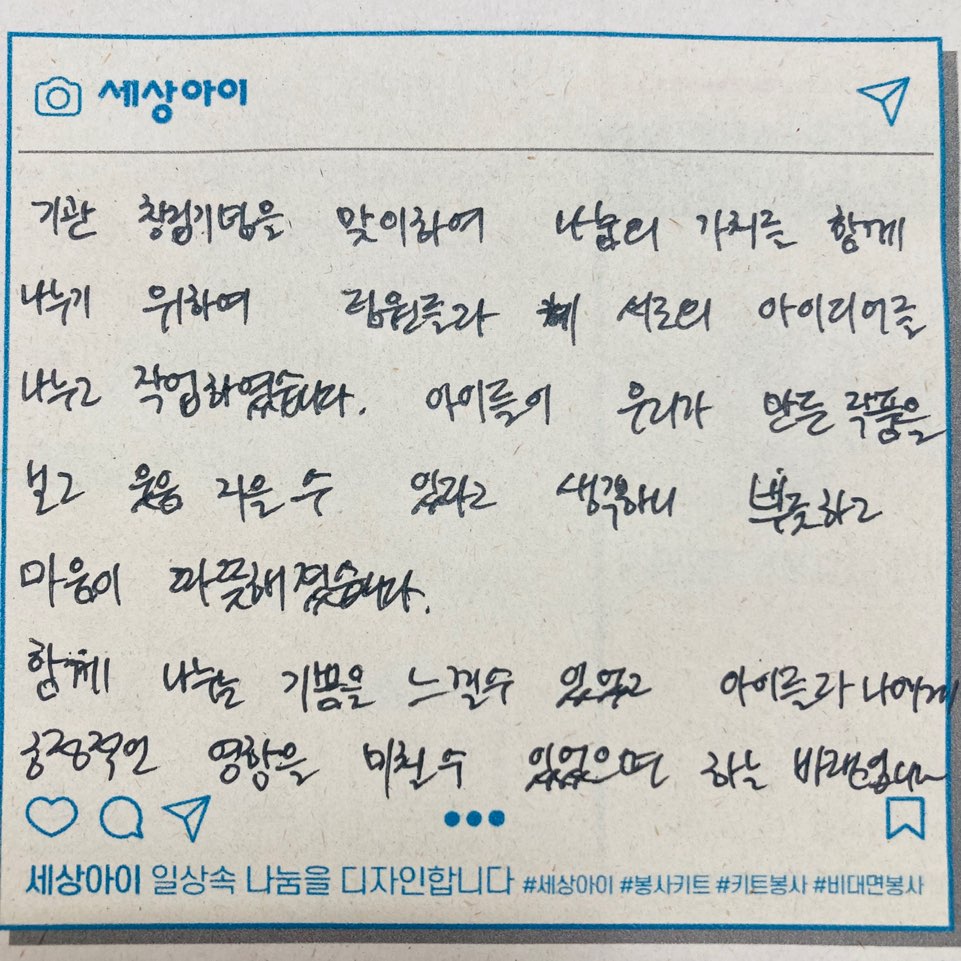 세상아이
기관 창립기념을 맞이하여 나눔의 가치를 함께
나누기 위하여 팀원들과 서로의 아이디어를
나누고 작업하였습니다. 아이들이 우리가 만든 작품을
보고 웃음 지을 수 있다고 생각하니 뿌듯하고
마음이 따뜻해졌습니다.
함께 나누는 기쁨을 느낄수 있었고 아이들과 나에게
긍정적인 영향을 미칠 수 있었으면 하는 바램입니다
세상아이 일상속 나눔을 디자인합니다 #세상아이 #봉사키트 #키트봉사 #비대면봉사